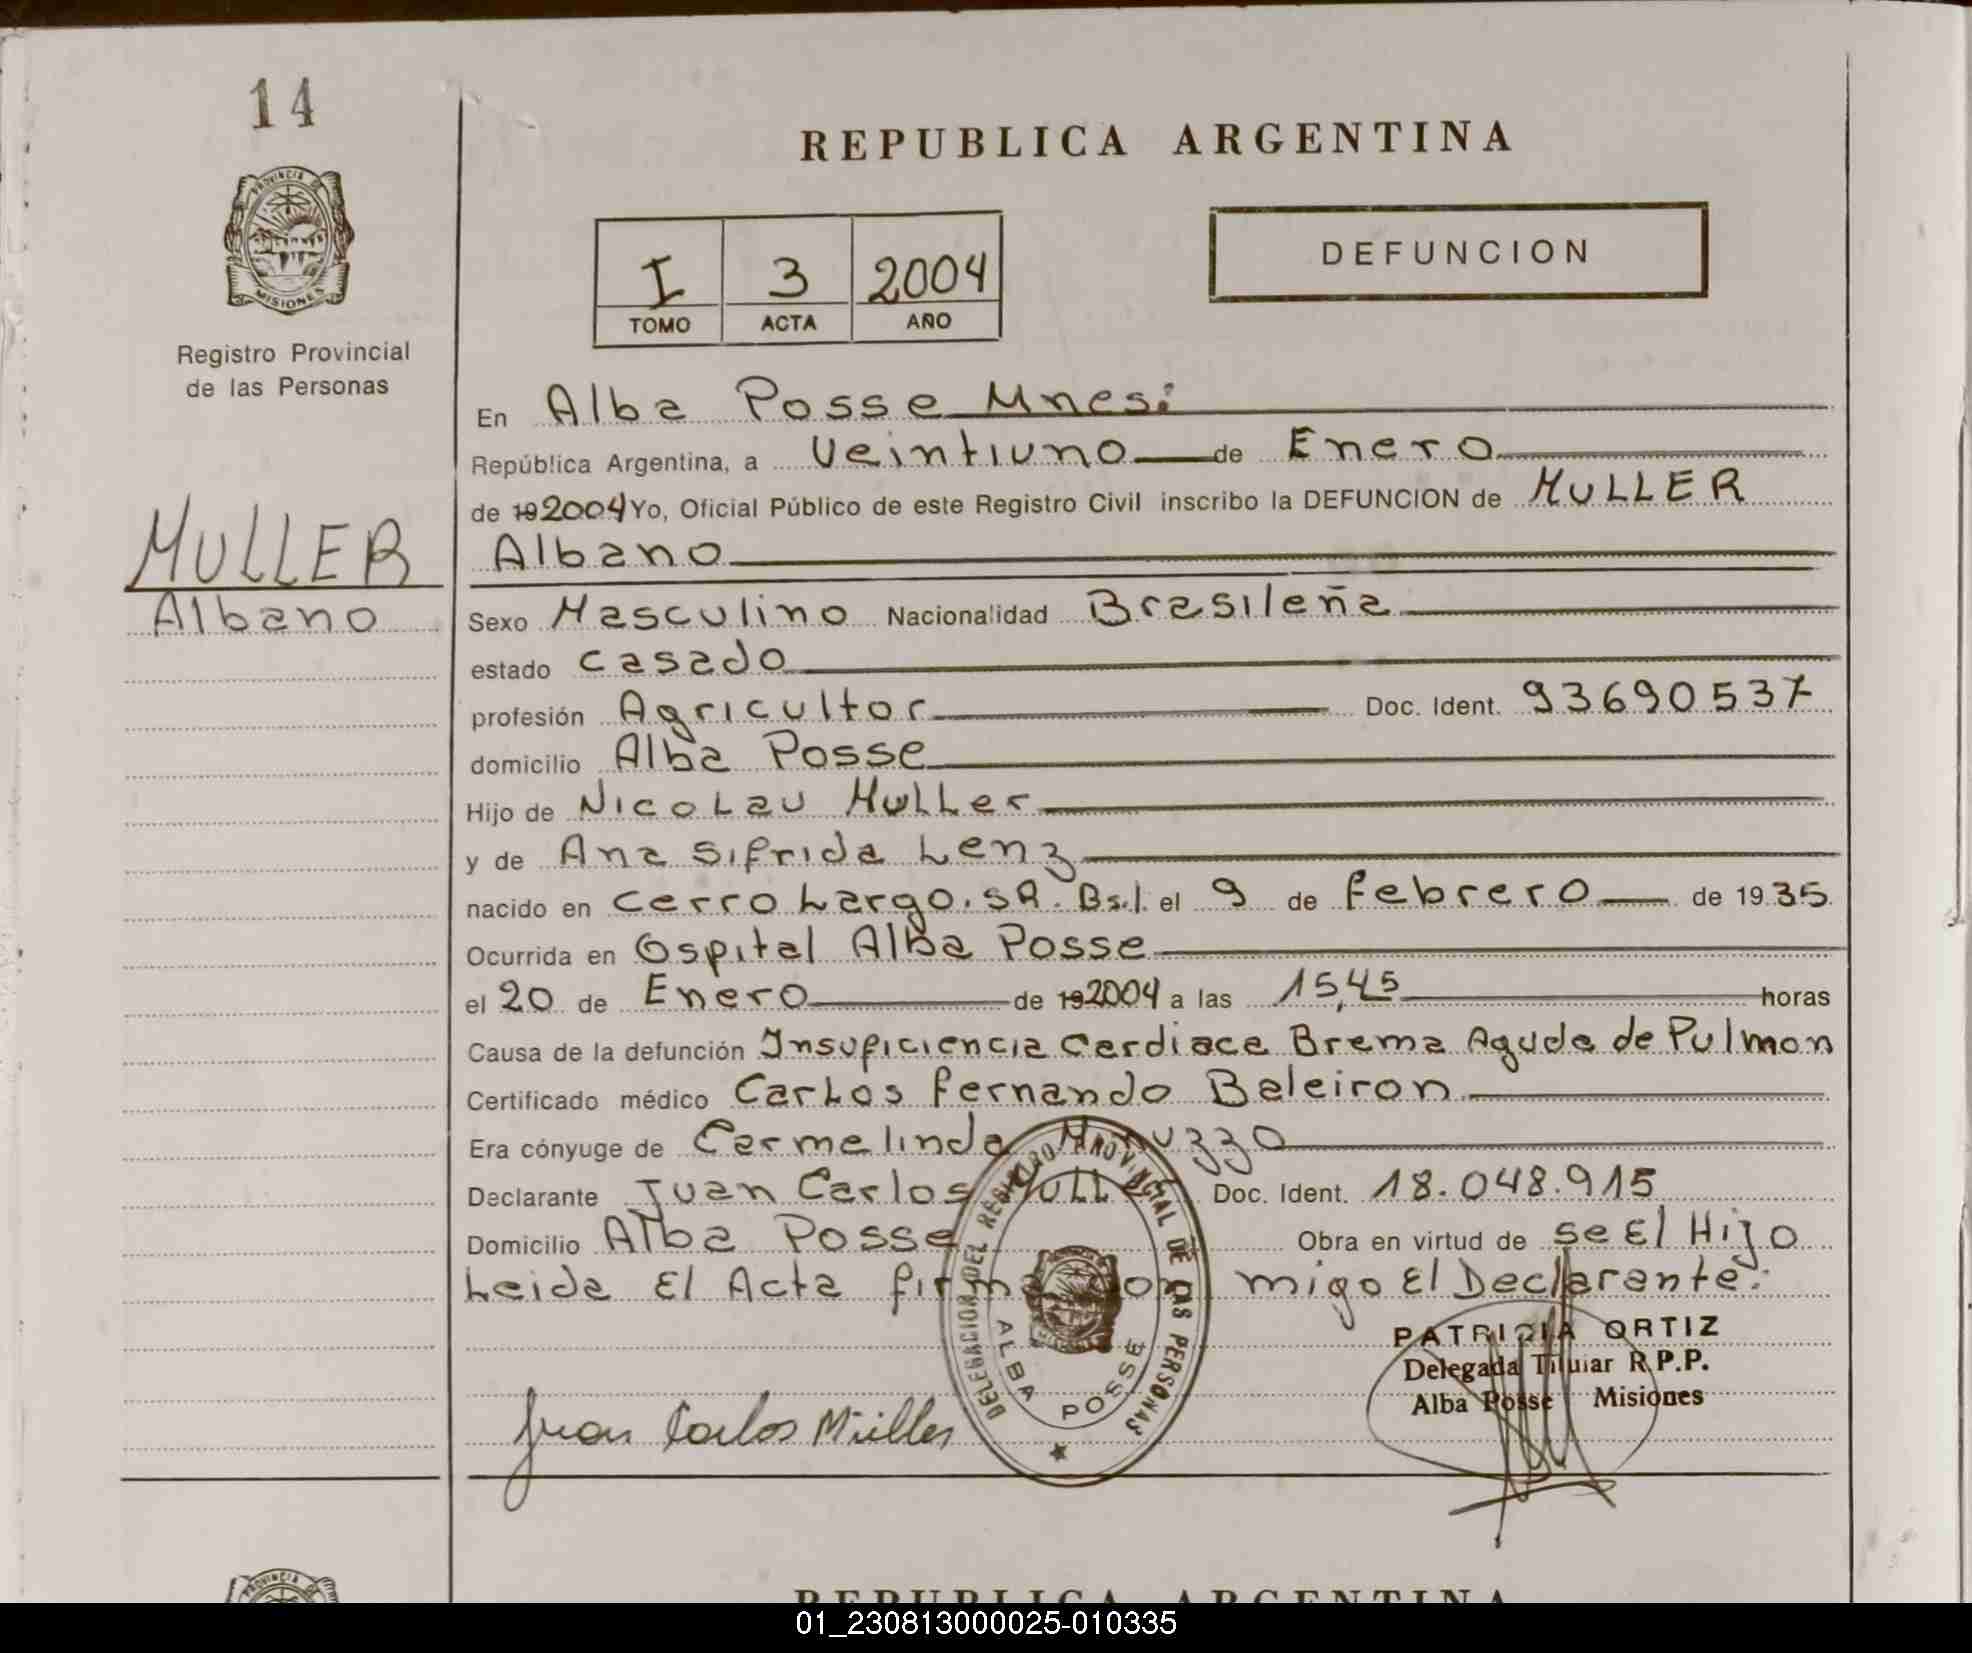 14
PROVINCIA DE
MISIONES
Registro Provincial
de las Personas
MULLER
Albano
REPUBLICA ARGENTINA
I 3 2004
TOMO ACTA AÑO
DEFUNCION
En Alba Posse Mnesi
República Argentina, a Veintiuno de Enero
de 192004 Yo, Oficial Público de este Registro Civil inscribo la DEFUNCION de MULLER
Albano
Sexo Masculino Nacionalidad Brasileña
estado casado
profesión Agricultor Doc. Ident. 93690537
domicilio Alba Posse
Hijo de Nicolau Muller
y de Ana Sifrida Lenz
nacido en Cerro Largo. SR. Bsl. el 9 de febrero de 1935
Ocurrida en Ospital Alba Posse
el 20 de Enero de 192004 a las 15,45 horas
Causa de la defunción Insuficiencia Cardiaca Brema Aguda de Pulmon
Certificado médico Carlos fernando Baleiron
Era cónyuge de Carmelinda
Declarante Juan Carlos Muller Doc. Ident. 18.048.915
Domicilio Alba Posse Obra en virtud de se El Hijo
Leida El Acta firma con migo El Declarante.
DELEGACION DEL REGISTRO PROVINCIAL DE LAS PERSONAS
ALBA POSSE
PATRICIA ORTIZ
Delegada Titular R.P.P.
Alba Posse Misiones
Juan Carlos Müller
PROVINCIA DE
REPUBLICA ARGENTINA
01_230813000025-010335